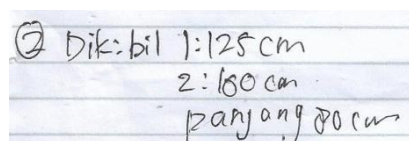 ② Dik: bil 1: 125 cm
2: 160 cm
panjang 80 cm